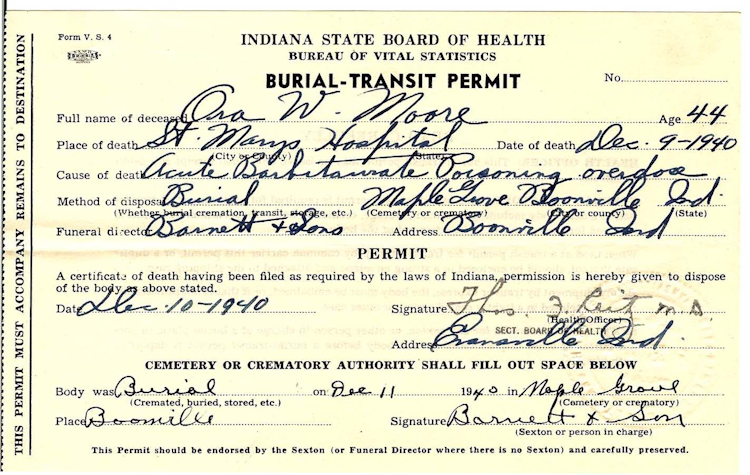 Form V. S. 4
INDIANA STATE BOARD OF HEALTH
BUREAU OF VITAL STATISTICS
BURIAL-TRANSIT PERMIT
No.
Full name of deceased Ora W. Moore Age 44
Place of death St. Marys Hospital Date of death Dec. 9-1940
(City or County) (State)
Cause of death Acute Barbitaurate Poisoning overdose
Method of disposal Burial Maple Grove Boonville Ind.
(Whether burial cremation, transit, storage, etc.) (Cemetery or crematory) (City or county) (State)
Funeral director Barnett & Sons Address Boonville Ind
PERMIT
A certificate of death having been filed as required by the laws of Indiana, permission is hereby given to dispose
of the body as above stated.
Date Dec. 10-1940 Signature Thos. M D
(Health Officer)
SECT. BOARD OF HEALTH
Address Evansville Ind.
CEMETERY OR CREMATORY AUTHORITY SHALL FILL OUT SPACE BELOW
Body was Burial on Dec 11 1940 in Maple Grove
(Cremated, buried, stored, etc.) (Cemetery or crematory)
Place Boonville Signature Barnett & Son
(Sexton or person in charge)
This Permit should be endorsed by the Sexton (or Funeral Director where there is no Sexton) and carefully preserved.
THIS PERMIT MUST ACCOMPANY REMAINS TO DESTINATION